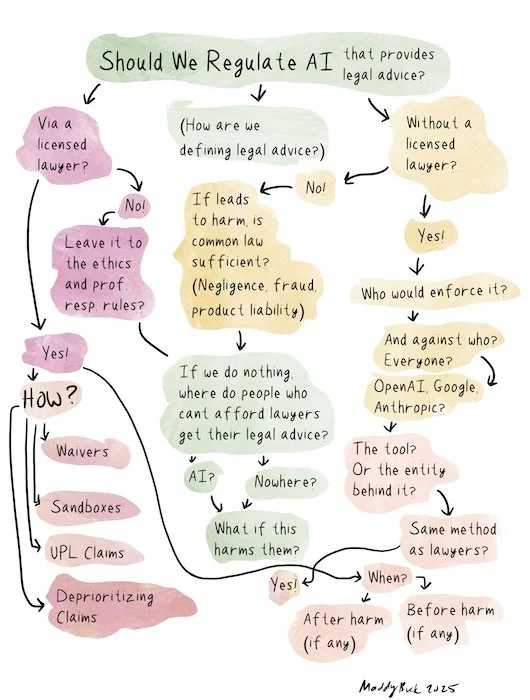 Should We Regulate AI that provides
legal advice?
Via a
licensed
lawyer?
(How are we
defining legal advice?)
Without a
licensed
lawyer?
No!
No!
Leave it to
the ethics
and prof.
resp. rules?
If leads
to harm, is
common law
sufficient?
(Negligence, fraud,
product liability)
Yes!
Who would enforce it?
And against who?
Everyone?
OpenAI, Google,
Anthropic?
Yes!
HOW?
Waivers
Sandboxes
UPL Claims
Deprioritizing
Claims
If we do nothing,
where do people who
cant afford lawyers
get their legal advice?
AI?
Nowhere?
What if this
harms them?
The tool?
Or the entity
behind it?
Same method
as lawyers?
Yes!
When?
After harm
(if any)
Before harm
(if any)
MaddyBuk 2025